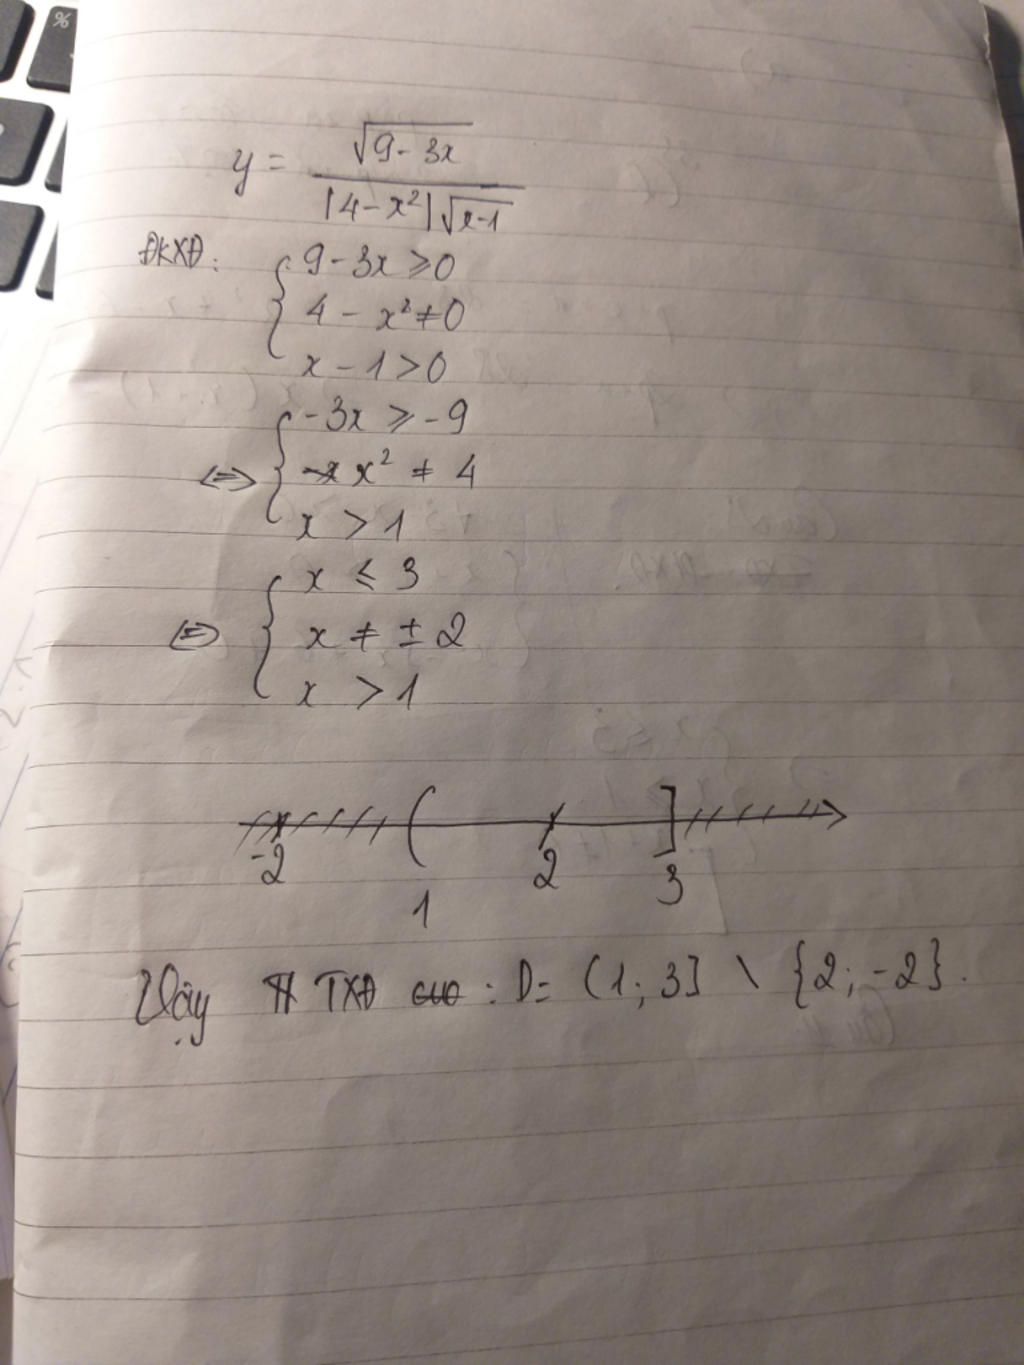 y = √(9 - 3x) / (|4 - x²|√(x-1))
ĐKXĐ: { 9 - 3x ≥ 0
4 - x² ≠ 0
x - 1 > 0
⇔ { -3x ≥ -9
x² ≠ 4
x > 1
⇔ { x ≤ 3
x ≠ ± 2
x > 1
-2 1 2 3
Vậy TXĐ : D = (1; 3] \ {2; -2}.